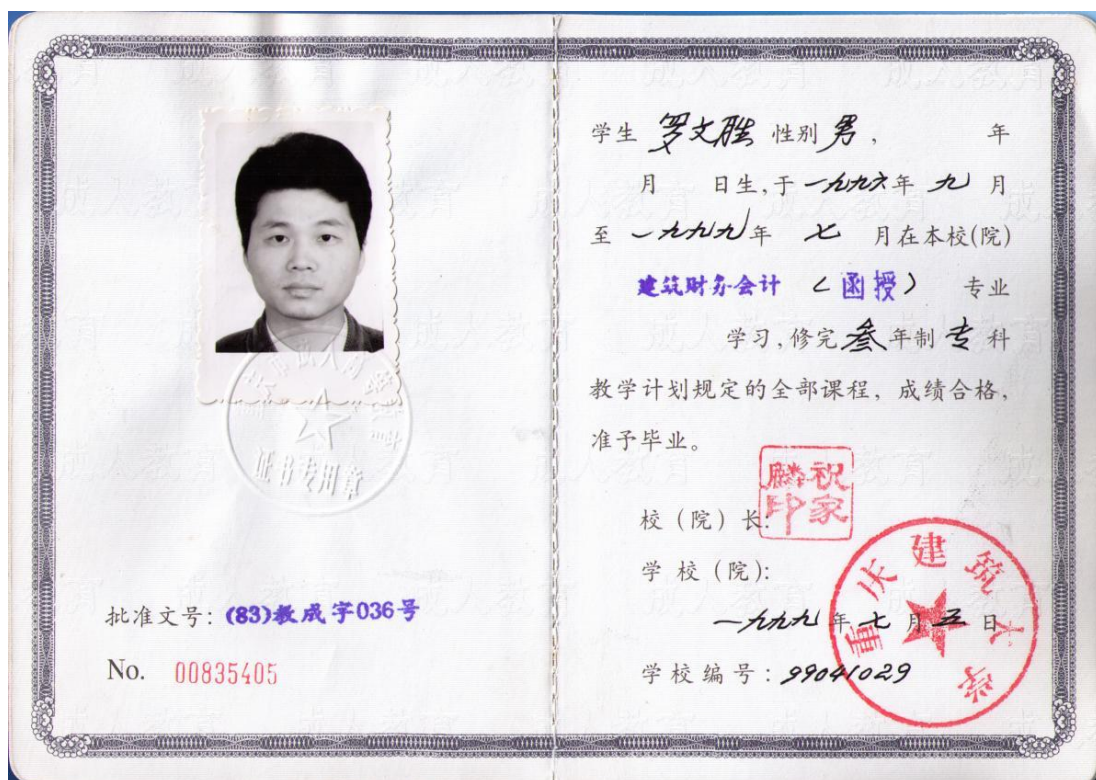 证书专用章
批准文号：(83)教成字036号
No. 00835405
学生 罗文胜 性别 男， 年
月 日生，于一九九六年 九 月
至 一九九九年 七 月在本校(院)
建筑财务会计 （函授） 专业
学习，修完叁年制专科
教学计划规定的全部课程，成绩合格，
准予毕业。
校（院）长：
祝家麟印
学校（院）：
重庆建筑大学
一九九九年七月五日
学校编号：99041029